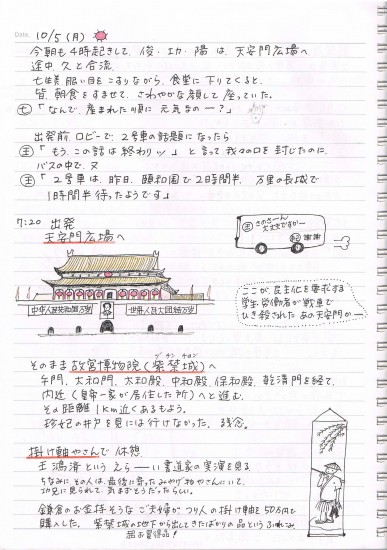 Date 10/5 (月)
今朝も4時起きして、俊・功・陽 は、天安門広場へ
途中、久と合流。
七生美 眠い目を こすりながら、食堂に 下りてくると、
皆、朝食をすませて、さわやかな顔して 座っていた。
七「なんで、産まれた順に 元気なのー？」
出発前、ロビーで、2号車の話題になったら
王「もう、この話は 終わりッ」と言って、我々の口を封じたのに、
バスの中で、又
王「2号車は、昨日、頤和園で2時間半、万里の長城で
1時間半 待ったようです」
7:20 出発
天安門広場へ
中华人民共和国万岁
世界人民大团结万岁
ここが、民主化を要求する
学生、労働者が戦車で
ひき殺された あの天安門かー
そのまま 故宮博物院(紫禁城)へ
午門、太和門、太和殿、中和殿、保和殿、乾清門を経て、
内廷（皇帝一家が居住した所）へと進む。
その距離 1km近くあるもよう。
珍妃の井戸を見には行けなかった。残念。
掛け軸やさんで 休憩
王鴻濤という えらーーい書道家の実演を見る。
ちなみに その人は、最後に寄った みやげ物やさんにいて、
功兄に見られて、気まずそうだったらしい。
鎌倉のお金持そうな ご夫婦が つり人の掛け軸を50万円で
購入した。紫禁城の地下から出してきたばかりの品というふれこみ。
超お買得品！